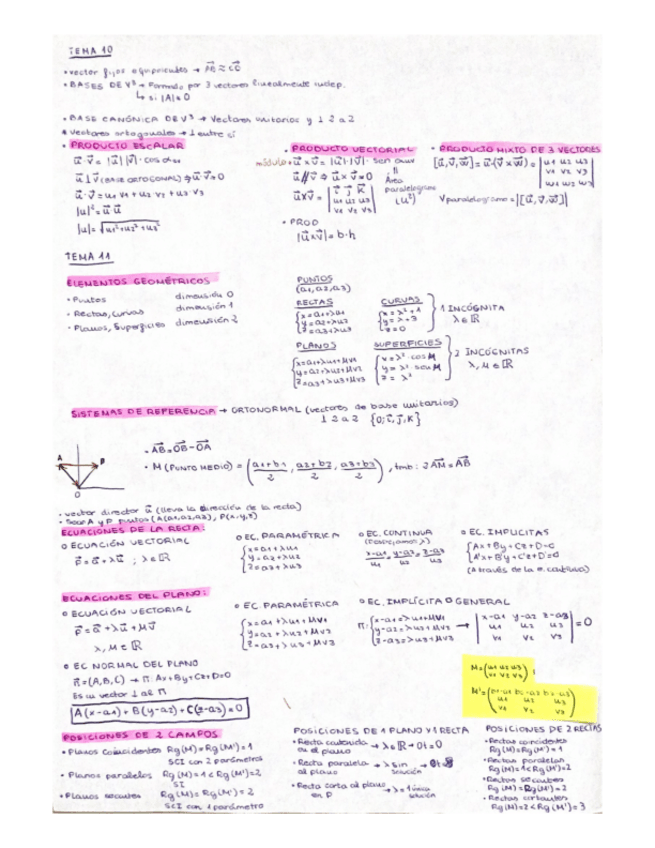 TEMA 10
• vector fijos equipolentes → AB ≈ CD
• BASES DE V³ → Formado por 3 vectores linealmente indep.
↳ si |A| ≠ 0
• BASE CANÓNICA DE V³ → Vectores unitarios y ⊥ 2 a 2
• vectores ortogonales → ⊥ entre sí
• PRODUCTO ESCALAR
u⃗·v⃗ = |u⃗||v⃗|·cos α
u⃗⊥v⃗ (BASE ORTOGONAL) ⇒ u⃗·v⃗=0
u⃗·v⃗ = u1 v1 + u2 v2 + u3 v3
|u|² = u⃗·u⃗
|u| = √u1²+u2²+u3²
• PRODUCTO VECTORIAL
módulo → u⃗×v⃗ = |u⃗|·|v⃗|· sen αuv
u⃗//v⃗ ⇒ u⃗×v⃗=0
Área paralelogramo (u²)
u⃗×v⃗ = | i⃗ j⃗ k⃗ |
u1 u2 u3
v1 v2 v3
• PROD
|u⃗×v⃗| = b·h
• PRODUCTO MIXTO DE 3 VECTORES
[u⃗,v⃗,w⃗] = u⃗·(v⃗×w⃗) = | u1 u2 u3 |
v1 v2 v3
w1 w2 w3
V paralelogramo = |[u⃗,v⃗,w⃗]|
TEMA 11
ELEMENTOS GEOMÉTRICOS
• Puntos dimensión 0
• Rectas, Curvas dimensión 1
• Planos, Superficies dimensión 2
PUNTOS
(a1,a2,a3)
RECTAS
x=a1+λu1
y=a2+λu2
z=a3+λu3
CURVAS
x=λ²+1
y=λ+3
z=0
1 INCÓGNITA
λ∈ℝ
PLANOS
x=a1+λu1+μv1
y=a2+λu2+μv2
z=a3+λu3+μv3
SUPERFICIES
x=λ²·cos μ
y=λ²·sen μ
z=λ²
2 INCÓGNITAS
λ, μ ∈ ℝ
SISTEMAS DE REFERENCIA → ORTONORMAL (vectores de base unitarios)
⊥ 2 a 2 {O;i⃗,j⃗,k⃗}
A B
O
• AB = OB − OA
• M (PUNTO MEDIO) = (a1+b1/2, a2+b2/2, a3+b3/2), tmb: 2AM = AB
• vector director u⃗ (lleva la dirección de la recta)
• Sean A y P puntos (A(a1,a2,a3), P(x,y,z)
ECUACIONES DE LA RECTA:
o ECUACIÓN VECTORIAL
p⃗ = a⃗+λu⃗ ; λ∈ℝ
o EC. PARAMÉTRICA
x=a1+λu1
y=a2+λu2
z=a3+λu3
o EC. CONTINUA
(Despejamos λ)
x-a1/u1 = y-a2/u2 = z-a3/u3
o EC. IMPLICITAS
Ax+By+Cz+D=0
A'x+B'y+C'z+D'=0
(A través de la e. continua)
ECUACIONES DEL PLANO:
o ECUACIÓN VECTORIAL
p⃗ = a⃗+λu⃗+μv⃗
λ, μ ∈ ℝ
o EC. PARAMÉTRICA
x=a1+λu1+μv1
y=a2+λu2+μv2
z=a3+λu3+μv3
o EC. IMPLÍCITA O GENERAL
π: x-a1=λu1+μv1
y-a2=λu2+μv2
z-a3=λu3+μv3
→ | x-a1 y-a2 z-a3 | = 0
u1 u2 u3
v1 v2 v3
o EC NORMAL DEL PLANO
n⃗=(A,B,C) → π: Ax+By+Cz+D=0
Es un vector ⊥ al π
A(x-a1)+B(y-a2)+C(z-a3)=0
M=(u1 u2 u3
v1 v2 v3)
M'=(b1-a1 b2-a2 b3-a3
u1 u2 u3
v1 v2 v3)
POSICIONES DE 2 CAMPOS
• Planos Coincidentes Rg(M)=Rg(M')=1
SCI con 2 parámetros
• Planos paralelos Rg(M)=1<Rg(M')=2
SI
• Planos secantes Rg(M)=Rg(M')=2
SCI con 1 parámetro
POSICIONES DE 1 PLANO Y 1 RECTA
• Recta contenida en el plano → λ∈ℝ → 0t=0
• Recta paralela al plano → λ sin solución
• Recta corta al plano en P → λ=1 única solución
POSICIONES DE 2 RECTAS
• Rectas coincidentes
Rg(M)=Rg(M')=1
• Rectas paralelas
Rg(M)=1<Rg(M')=2
• Rectas secantes
Rg(M)=Rg(M')=2
• Rectas
Rg(M)=2<Rg(M')=3